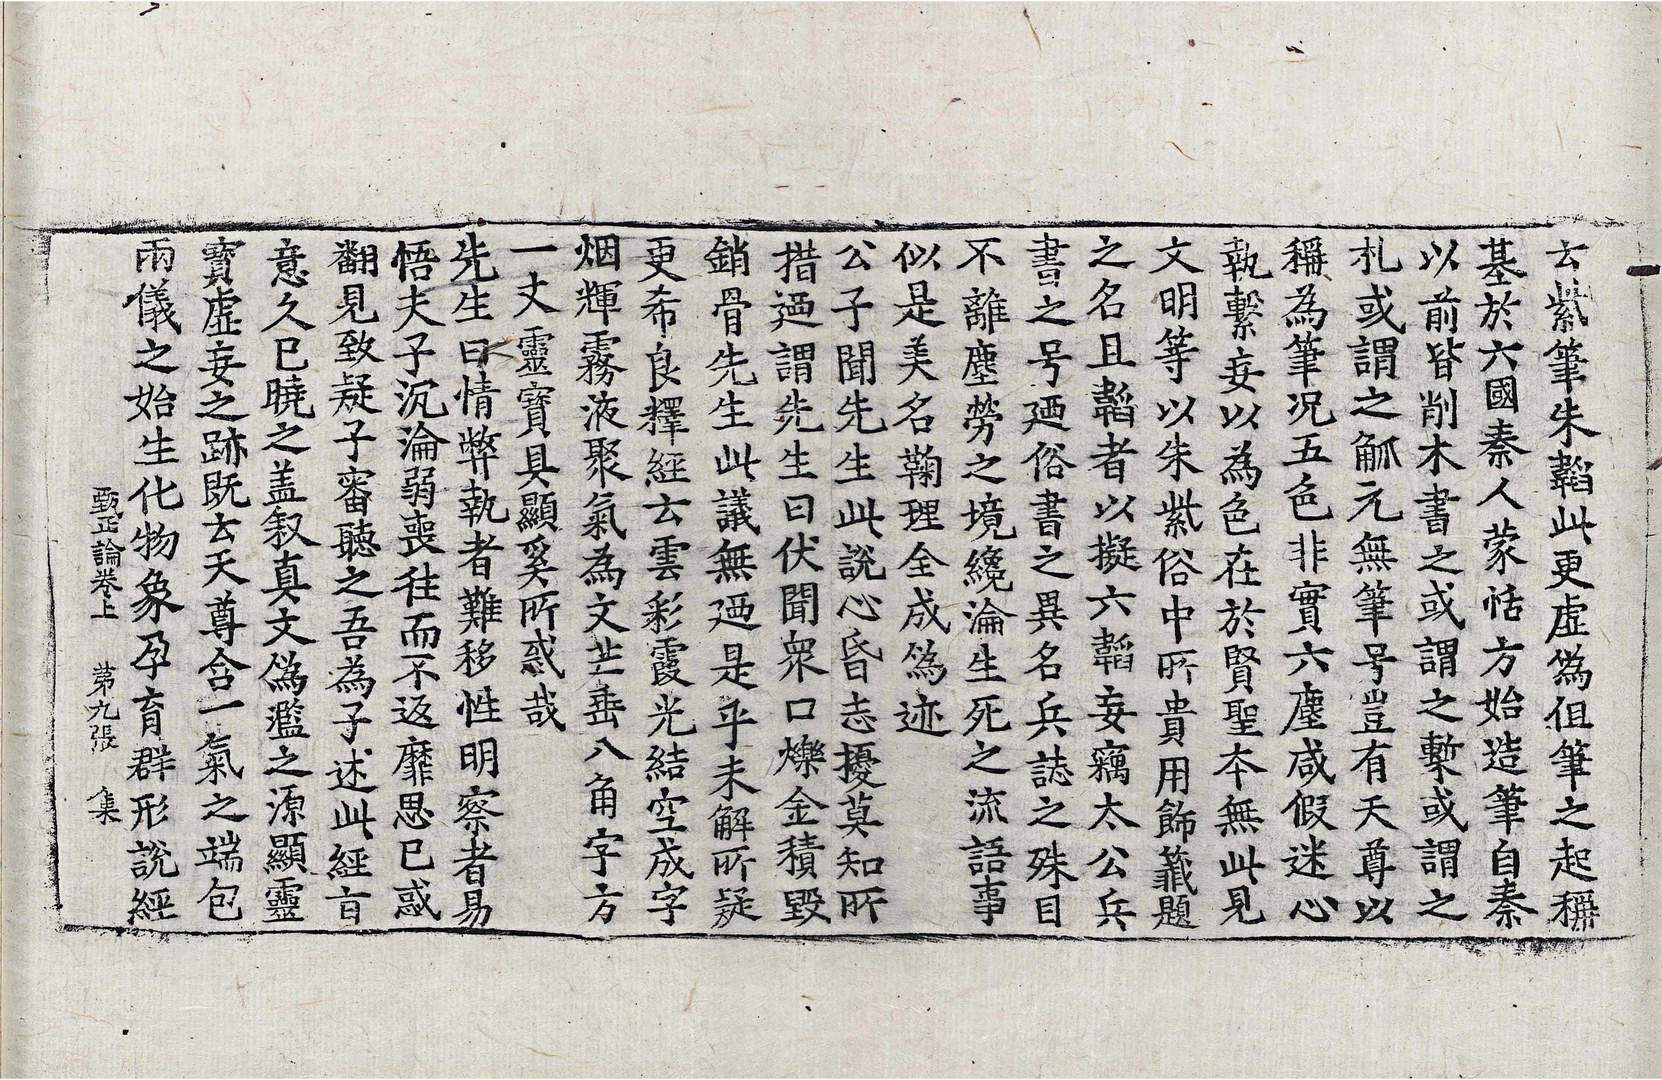 云紫筆朱韜此更虛僞但筆之起稱
基於六國秦人蒙恬方始造筆自秦
以前皆削木書之或謂之槧或謂之
札或謂之觚元無筆号豈有天尊以
稱為筆况五色非實六塵咸假迷心
執繫妄以為色在於賢聖本無此見
文明等以朱紫俗中所貴用飾籖題
之名且韜者以擬六韜妄竊太公兵
書之号廼俗書之異名兵誌之殊目
不離塵勞之境纔淪生死之流語事
似是美名鞫理全成僞迹
公子聞先生此說心昏志擾莫知所
措廼謂先生曰伏聞衆口爍金積毀
銷骨先生此議無廼是乎未解所疑
更希良釋經云雲彩霞光結空成字
烟輝霧液聚氣為文芒垂八角字方
一丈靈寶具顯奚所惑哉
先生曰情弊執者難移性明察者易
悟夫子沉淪弱喪徃而不返靡思已惑
翻見致疑子審聽之吾為子述此經旨
意久已曉之盖叙真文僞濫之源顯靈
寶虛妄之跡既云天尊含一氣之端包
兩儀之始生化物象孕育群形說經
甄正論卷上　第九張　集